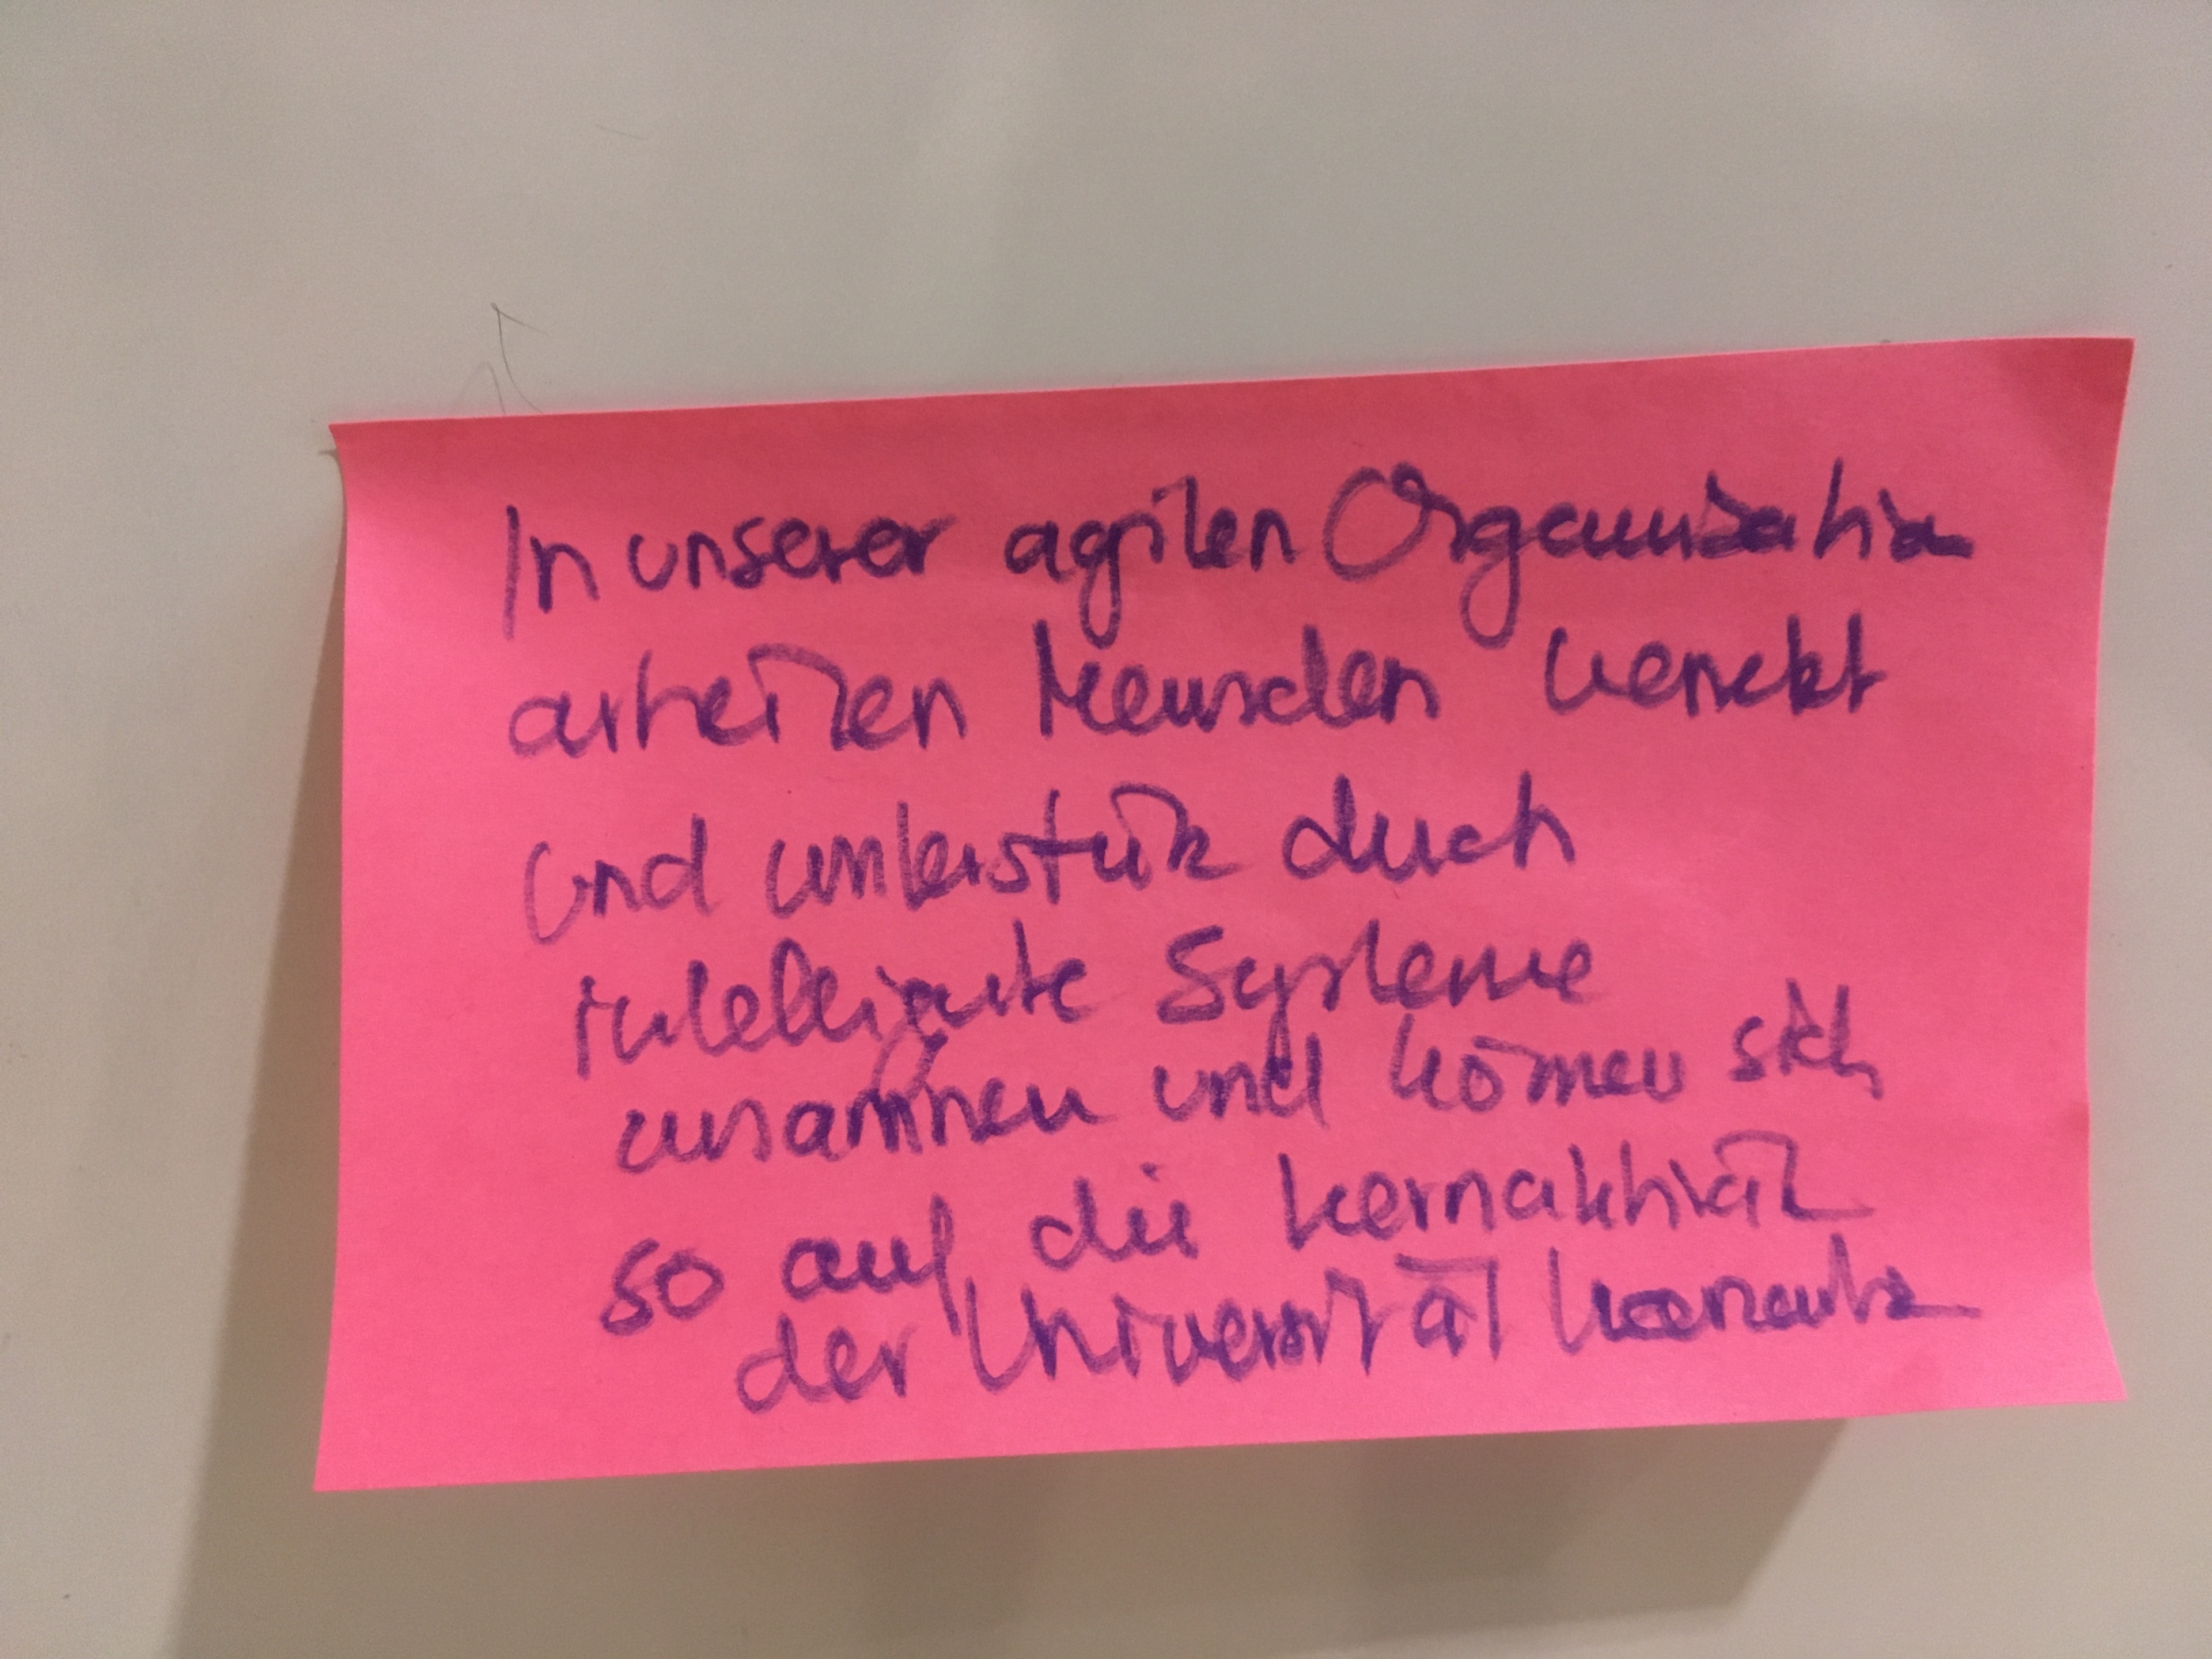 In unserer agilen Organisation
arbeiten Menschen vernetzt
und unterstützt durch
intelligente Systeme
zusammen und können sich
so auf die Kernaktivität
der Universität konzentr